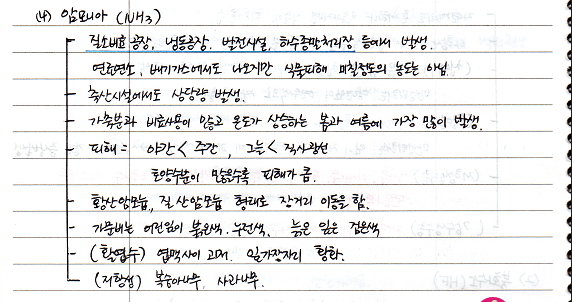 (4) 암모니아 (NH₃)
- 질소비료공장, 냉동공장, 발전시설, 하수종말처리장 등에서 발생.
연료연소, 배기가스에서도 나오지만 식물피해 미칠정도의 농도는 아님.
- 축산시설에서도 상당량 발생.
- 가축분과 비료사용이 많고 온도가 상승하는 봄과 여름에 가장 많이 발생.
- 피해 = 야간 < 주간, 그늘 < 직사광선
토양수분이 많을수록 피해가 큼.
- 황산암모늄, 질산암모늄 형태로 장거리 이동을 함.
- 가문비는 어린잎이 붉은색. 무전색, 늙은 잎은 검은색
- (활엽수) 엽맥사이 괴저, 잎가장자리 황화.
- (저항성) 복숭아나무, 사과나무.